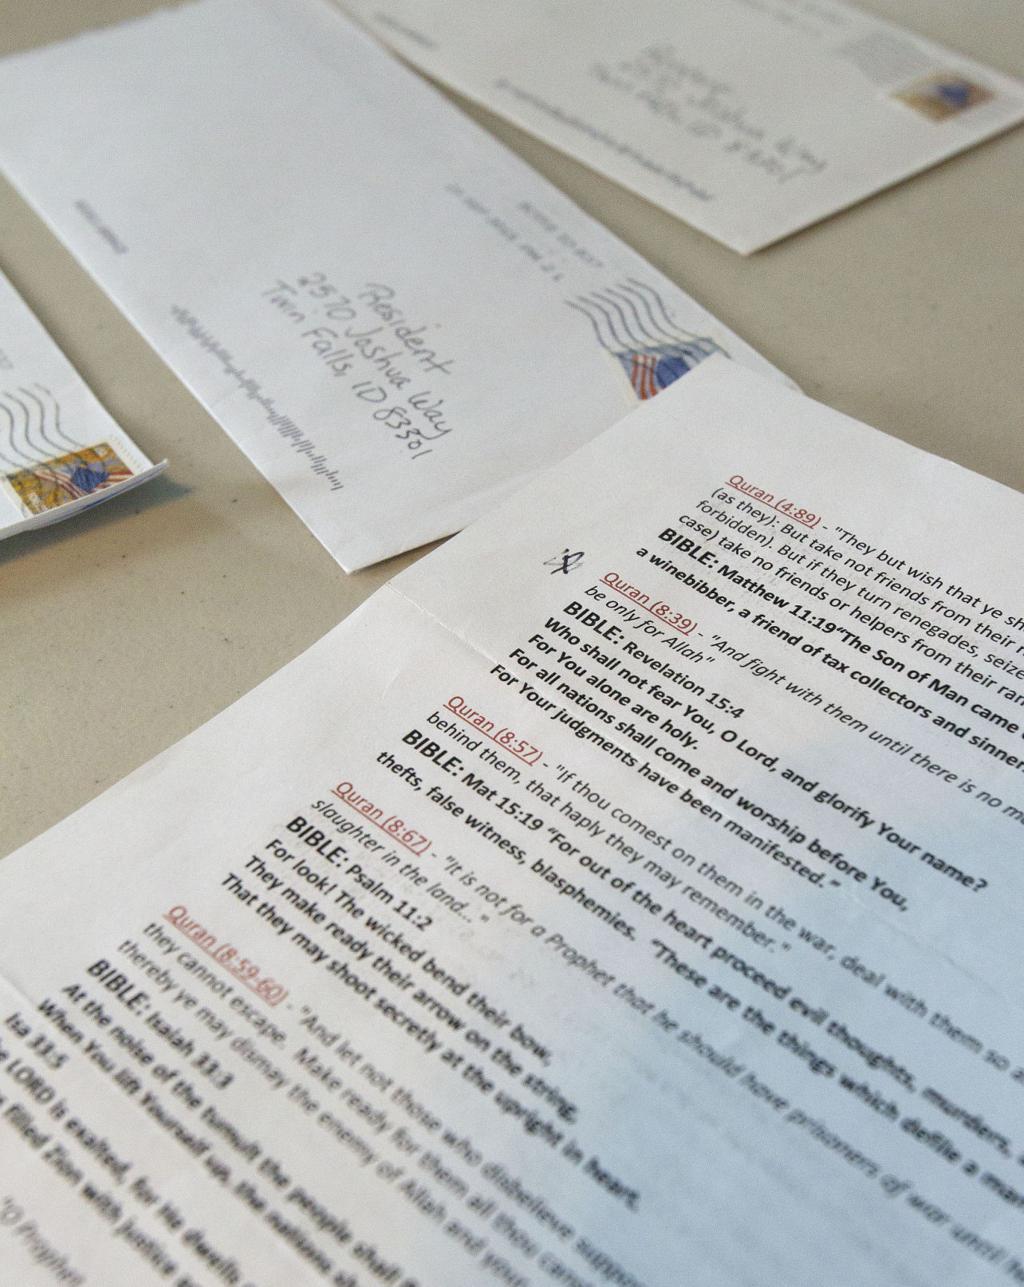 Resident
2570 Joshua Way
Twin Falls, ID 83301
Resident
2570 Joshua Way
Twin Falls, ID 83301
Quran (4:89) - "They but wish that ye
(as they): But take not friends from their
forbidden). But if they turn renegades, seize
case) take no friends or helpers from their
BIBLE: Matthew 11:19"The Son of Man came
a winebibber, a friend of tax collectors and sinner
Quran (8:39) - "And fight with them until there is no
be only for Allah"
BIBLE: Revelation 15:4
Who shall not fear You, O Lord, and glorify Your name?
For You alone are holy.
For all nations shall come and worship before You,
For Your judgments have been manifested."
Quran (8:57) - "If thou comest on them in the war, deal with them so
behind them, that haply they may remember."
BIBLE: Mat 15:19 "For out of the heart proceed evil thoughts, murders,
thefts, false witness, blasphemies. "These are the things which defile a
Quran (8:67) - "It is not for a Prophet that he should have prisoners of war until
slaughter in the land..."
BIBLE: Psalm 11:2
For look! The wicked bend their bow,
They make ready their arrow on the string,
That they may shoot secretly at the upright in heart.
Quran (8:59-60) - "And let not those who disbelieve suppose
they cannot escape. Make ready for them all thou
thereby ye may dismay the enemy of Allah and your
BIBLE: Isaiah 33:3
At the noise of the tumult the people shall
When You lift Yourself up, the nations
Isa 33:5
LORD is exalted, for He dwells
filled Zion with justice
"O Prophet